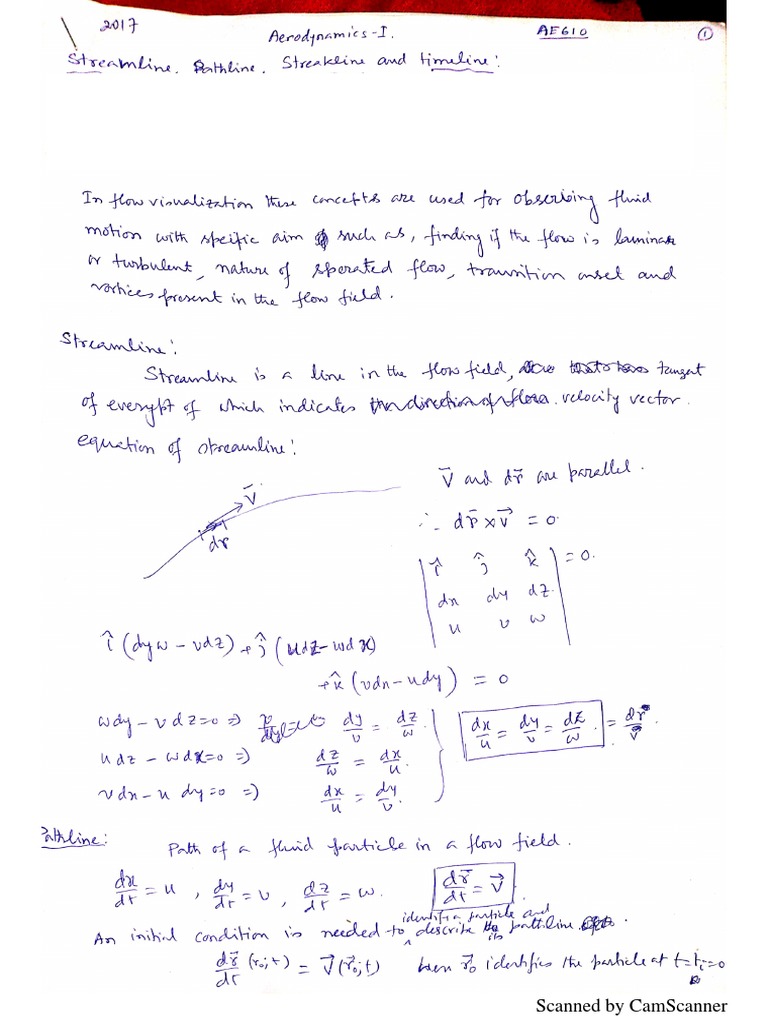 2017 Aerodynamics-I. AE610 1
Streamline, Pathline, Streakline and timeline:
In flow visualization these concepts are used for observing fluid
motion with specific aim such as, finding if the flow is laminar
or turbulent, nature of sperated flow, transition onset and
vortices present in the flow field.
Streamline:
Streamline is a line in the flow field, tangent
of everypt of which indicates velocity vector.
equation of streamline:
V⃗ and dr⃗ are parallel.
V⃗
dr
∴ dr⃗ × V⃗ = 0
| î ĵ k̂ | = 0.
dx dy dz
u v w
î (dyw - vdz) + ĵ (udz - wdx)
+ k̂ (vdx - udy) = 0
wdy - vdz = 0 => dy/v = dz/w
udz - wdx = 0 => dz/w = dx/u.
vdx - u dy = 0 => dx/u = dy/v.
dx/u = dy/v = dz/w = dr⃗/V⃗.
Pathline: Path of a fluid particle in a flow field.
dx/dt = u , dy/dt = v , dz/dt = w. dr⃗/dt = V⃗
identific particle and
An initial condition is needed to describe its pathline
dr⃗/dt (r₀; t) = V⃗(r⃗₀; t) r⃗₀ identifies the particle at t = tᵢ = 0
Scanned by CamScanner